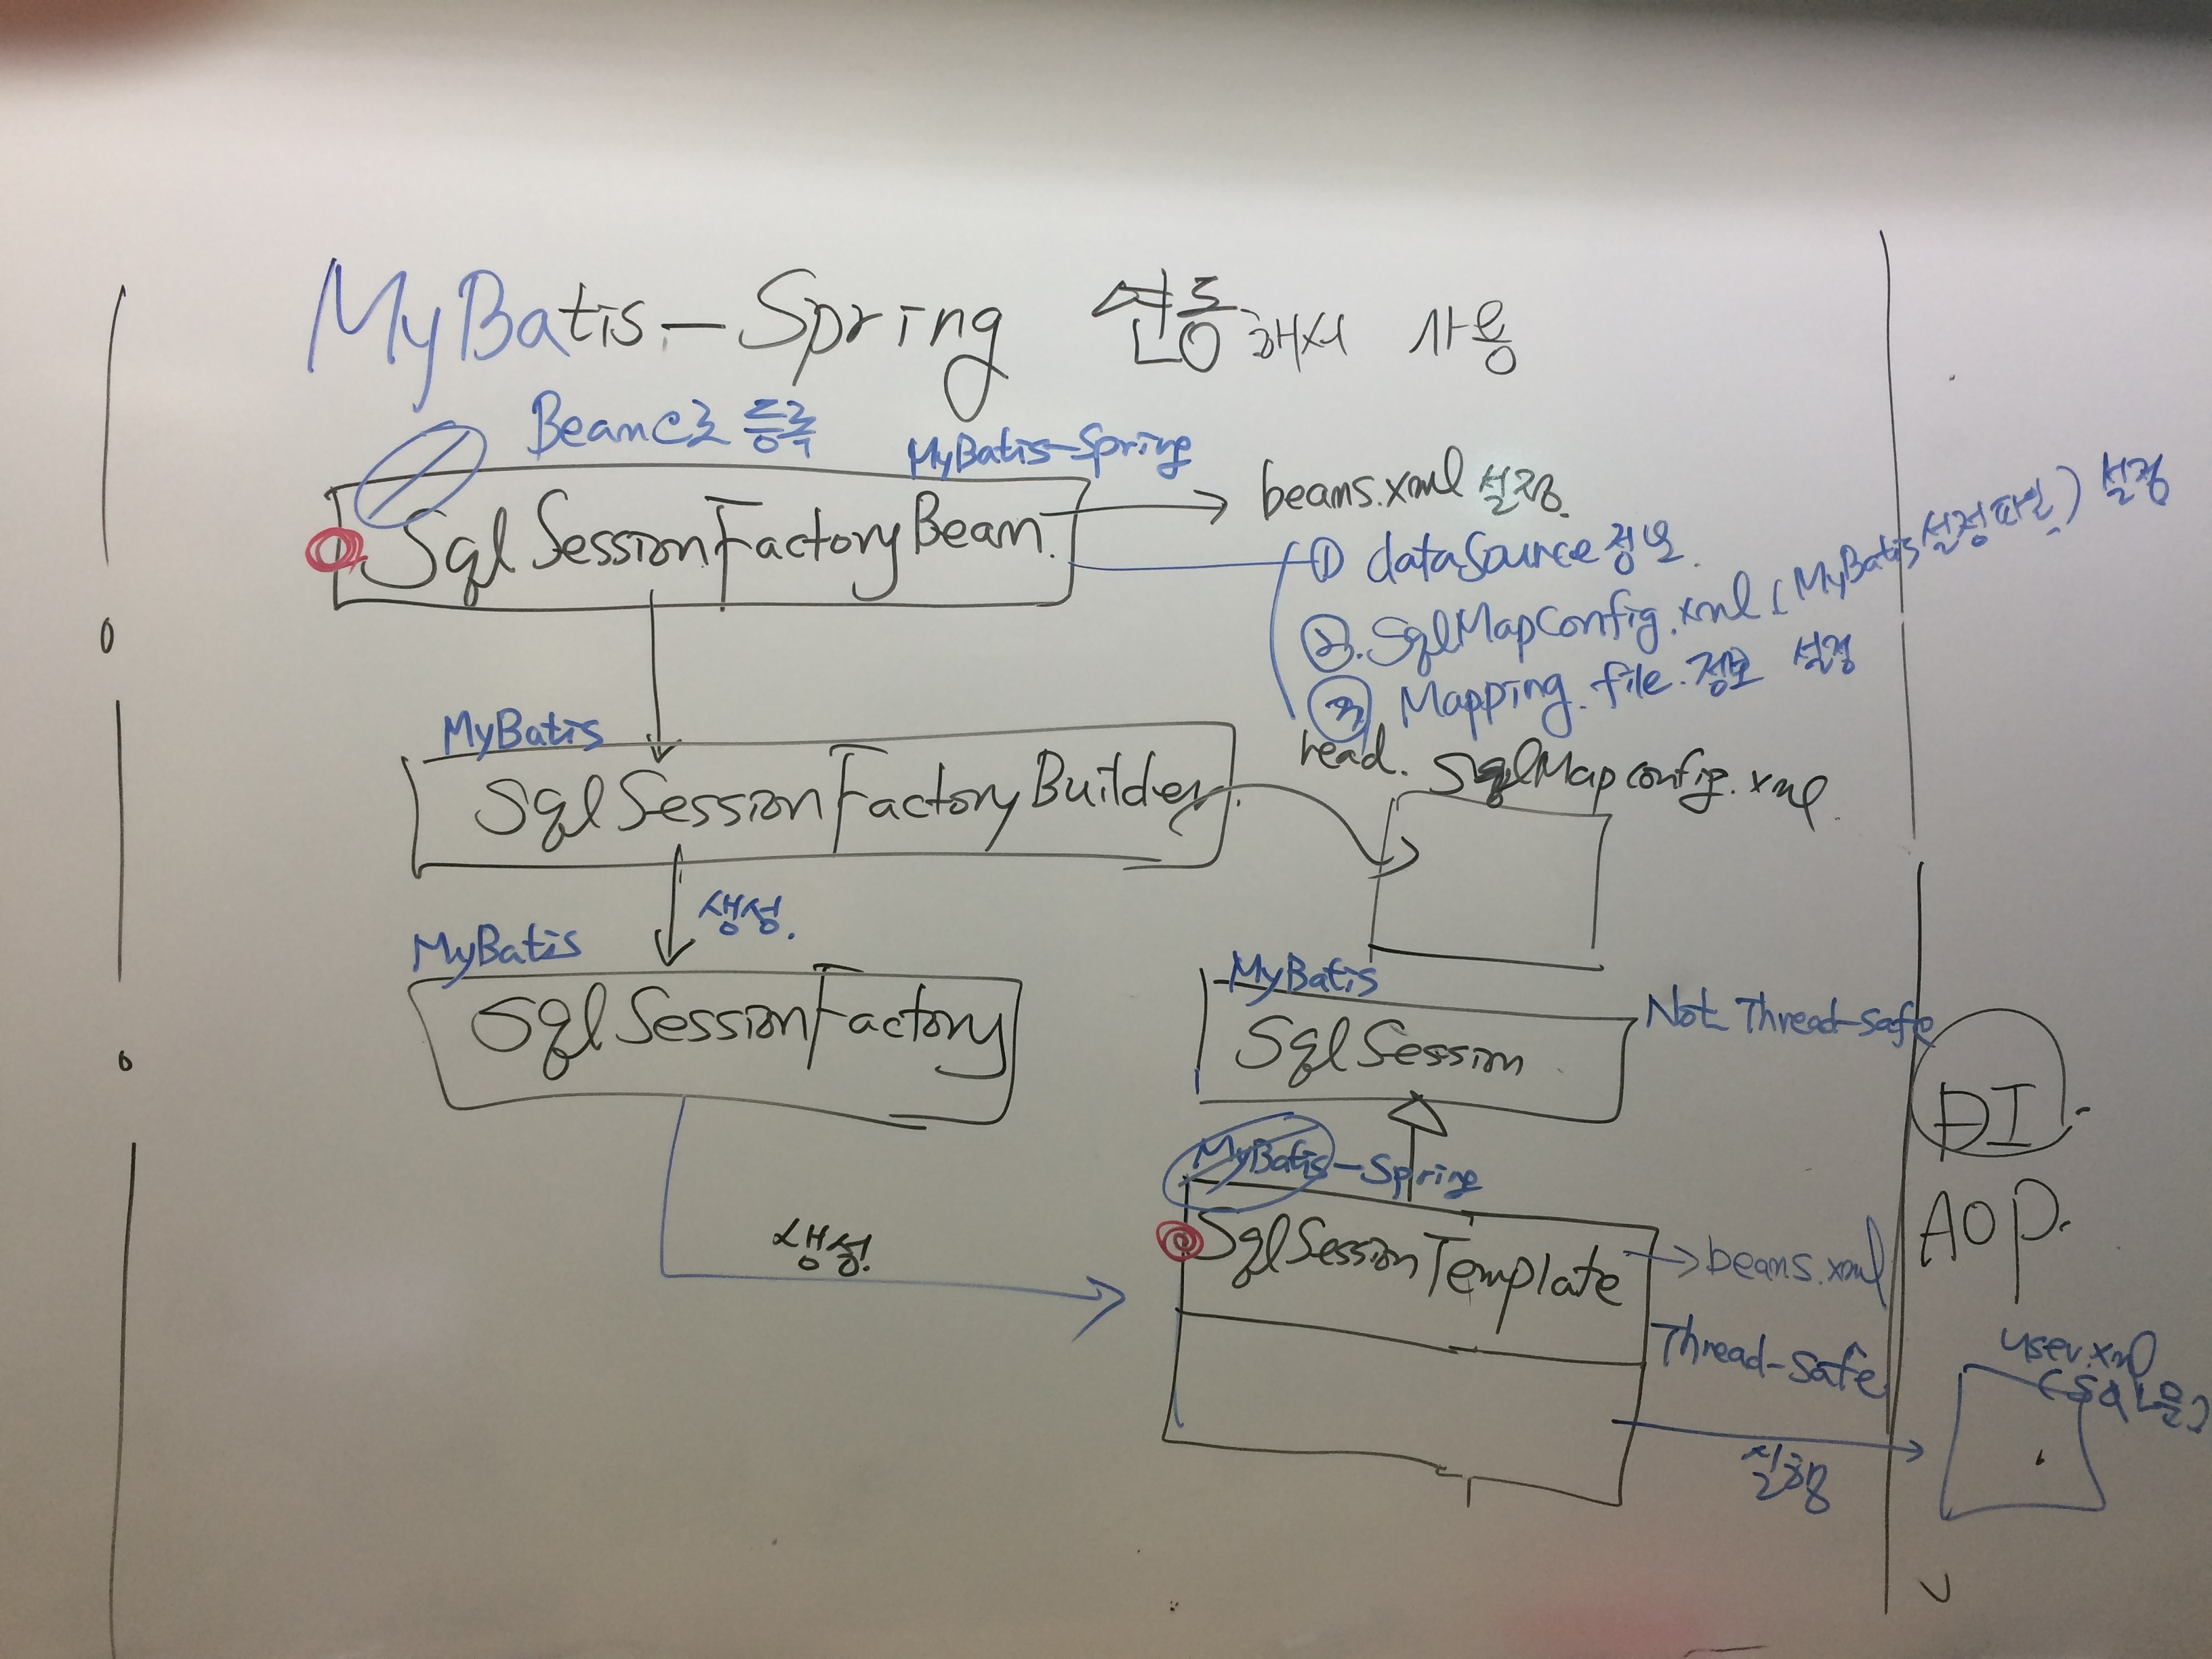 MyBatis-Spring 연동해서 사용
Bean으로 등록
MyBatis-Spring
SqlSessionFactoryBean
beans.xml 설정
① dataSource 정보
②. SqlMapConfig.xml (MyBatis 설정파일) 설정
③ Mapping file 정보 설정
MyBatis
SqlSessionFactoryBuilder
read.
SqlMapConfig.xml
생성.
MyBatis
SqlSessionFactory
MyBatis
SqlSession
Not Thread-Safe
DI
AOP.
MyBatis-Spring
SqlSessionTemplate
beans.xml
Thread-Safe
생성.
user.xml
(SQL문)
실행